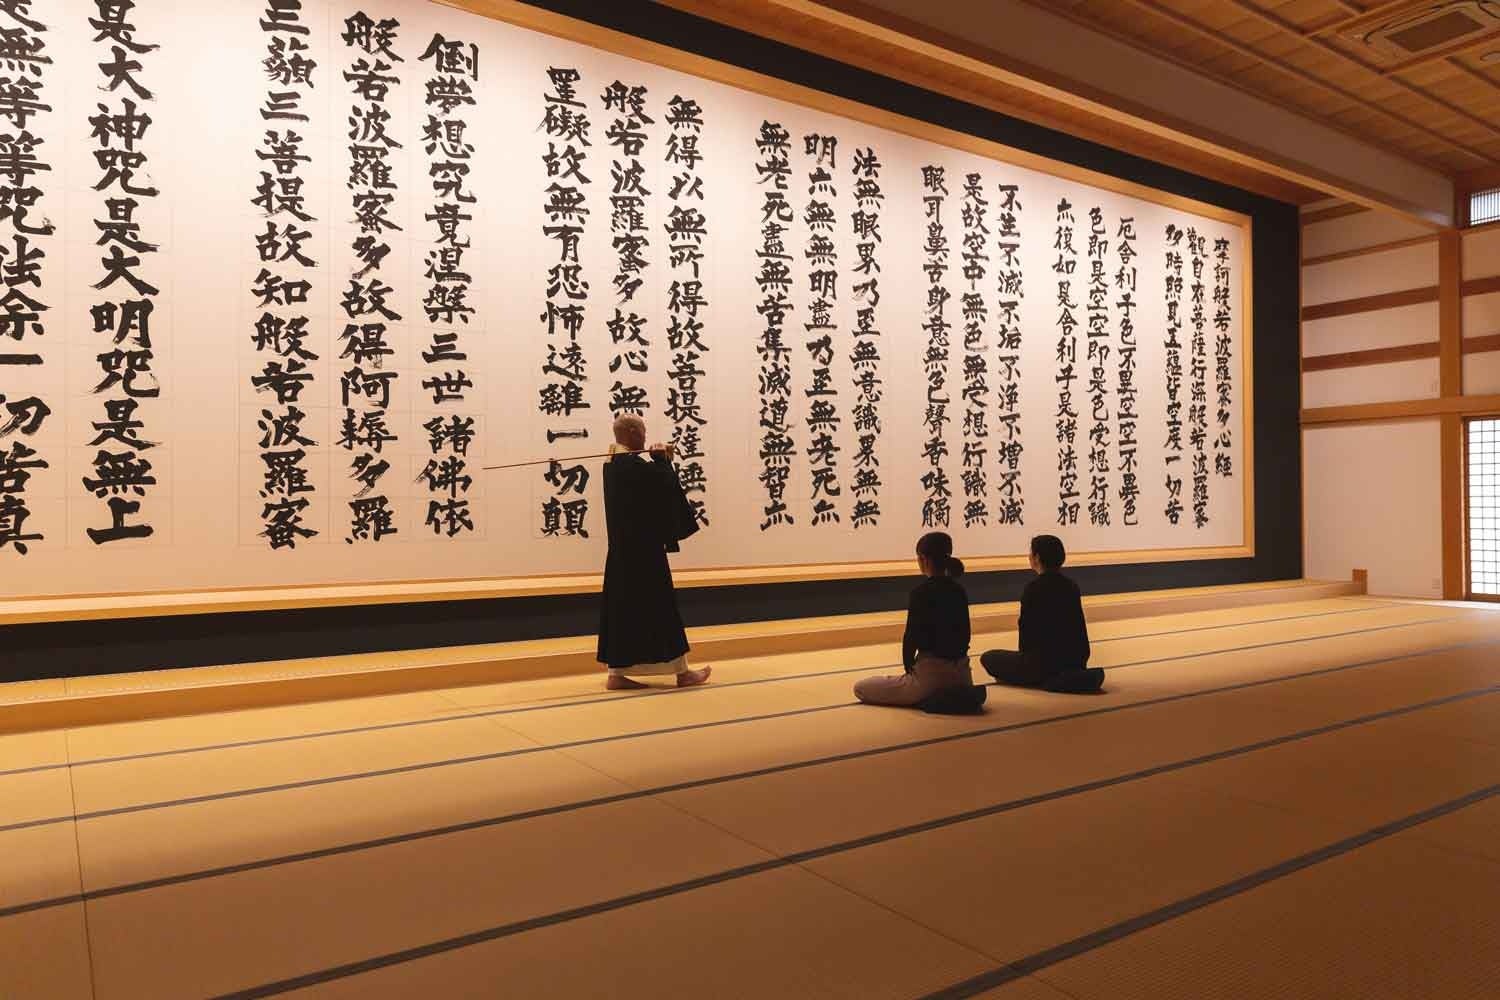 摩訶般若波羅蜜多心経
觀自在菩薩行深般若波羅蜜
多時照見五蘊皆空度一切苦
厄舎利子色不異空空不異色
色即是空空即是色受想行識
亦復如是舎利子是諸法空相
不生不滅不垢不浄不増不減
是故空中無色無受想行識無
眼耳鼻舌身意無色聲香味觸
法無眼界乃至無意識界無無
明亦無無明盡乃至無老死亦
無老死盡無苦集滅道無智亦
無得以無所得故菩提薩埵依
般若波羅蜜多故心無
罣礙故無有恐怖遠離一切顛
倒夢想究竟涅槃三世諸佛依
般若波羅蜜多故得阿耨多羅
三藐三菩提故知般若波羅蜜
是大神咒是大明咒是無上
是無等等咒能除一切苦真